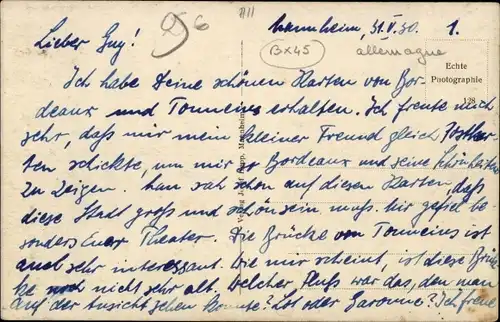 Mannheim, 31.V.30. 1.
Lieber Guy!
BX45
allemagne
Echte
Photographie
128
Ich habe Deine schönen Karten von Bor-
deaux und Tonneins erhalten. Ich freute mich
sehr, daß mir mein kleiner Freund gleich Postkar-
ten schickte, um mir Bordeaux und seine Schönheiten
zu zeigen. Man sah schon auf diesen Karten, daß
diese Stadt groß und schön sein muß. Mir gefiel be-
sonders Euer Theater. Die Brücke von Tonneins ist
auch sehr interessant. Wie mir scheint, ist diese Brük-
ke noch nicht sehr alt. Welcher Fluß war das, den man
auf der Ansicht sehen konnte? Lot oder Garonne? Ich freue